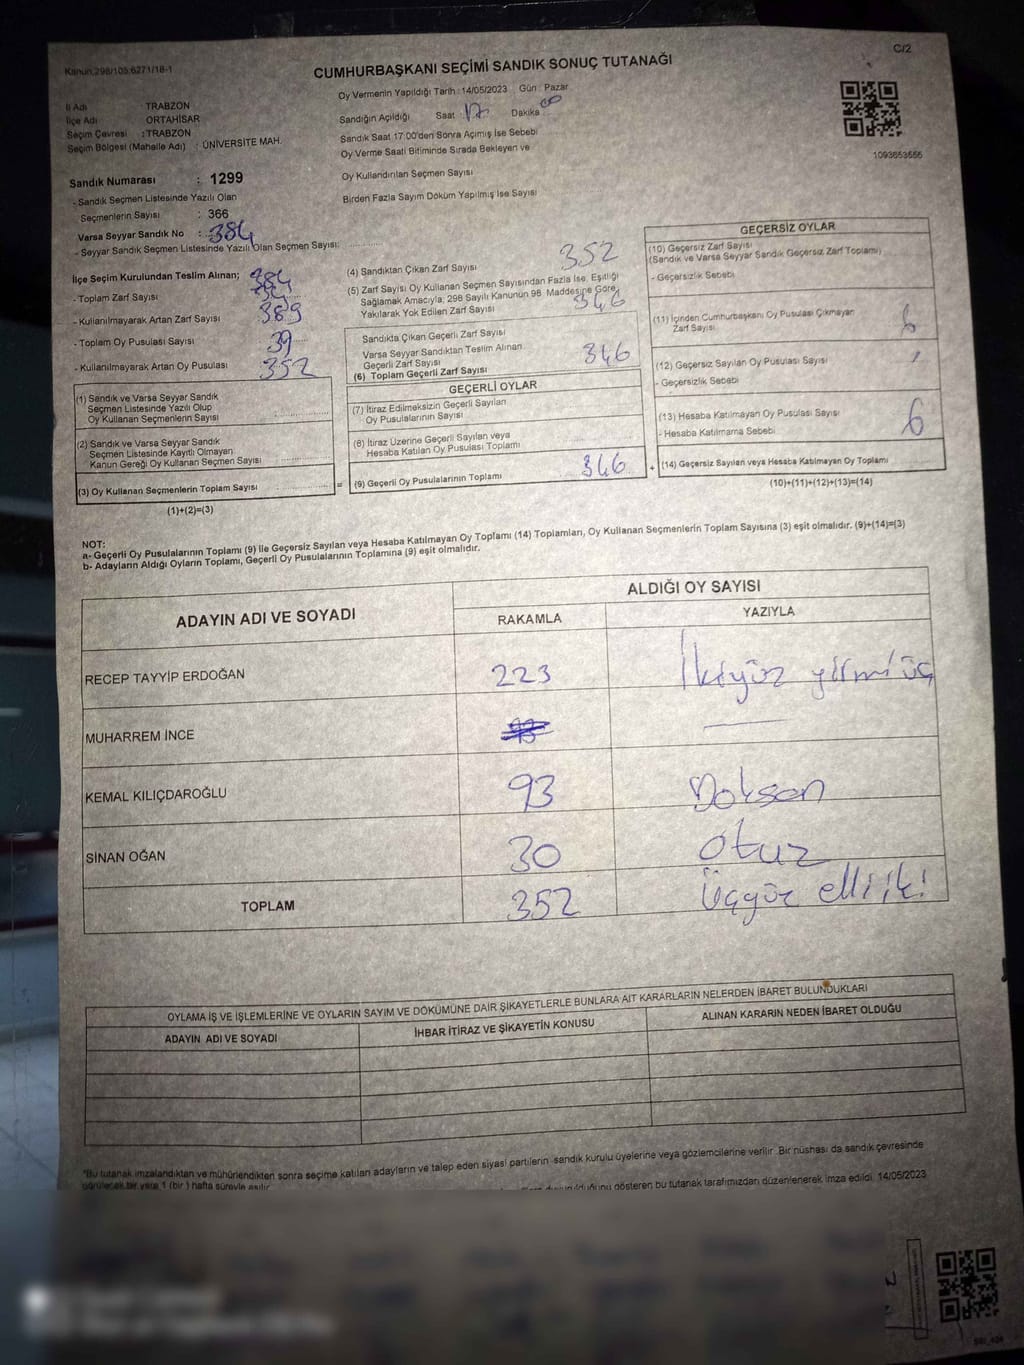 Kanun:298/105;6271/18-1
C/2
CUMHURBAŞKANI SEÇİMİ SANDIK SONUÇ TUTANAĞI
İl Adı TRABZON
İlçe Adı ORTAHİSAR
Seçim Çevresi : TRABZON
Seçim Bölgesi (Mahalle Adı) : ÜNİVERSİTE MAH.
Sandık Numarası : 1299
- Sandık Seçmen Listesinde Yazılı Olan
Seçmenlerin Sayısı : 366
Varsa Seyyar Sandık No : 384
- Seyyar Sandık Seçmen Listesinde Yazılı Olan Seçmen Sayısı:
İlçe Seçim Kurulundan Teslim Alınan; 384
- Toplam Zarf Sayısı
- Kullanılmayarak Artan Zarf Sayısı 389
- Toplam Oy Pusulası Sayısı 39
- Kullanılmayarak Artan Oy Pusulası 352
(1) Sandık ve Varsa Seyyar Sandık
Seçmen Listesinde Yazılı Olup
Oy Kullanan Seçmenlerin Sayısı
(2) Sandık ve Varsa Seyyar Sandık
Seçmen Listesinde Kayıtlı Olmayan
Kanun Gereği Oy Kullanan Seçmen Sayısı
(3) Oy Kullanan Seçmenlerin Toplam Sayısı
(1)+(2)=(3)
Oy Vermenin Yapıldığı Tarih : 14/05/2023 Gün : Pazar
Sandığın Açıldığı Saat 17 Dakika 00
Sandık Saat 17:00'den Sonra Açımış İse Sebebi
Oy Verme Saati Bitiminde Sırada Bekleyen ve
Oy Kullandırılan Seçmen Sayısı
Birden Fazla Sayım Döküm Yapılmış İse Sayısı
(4) Sandıktan Çıkan Zarf Sayısı 352
(5) Zarf Sayısı Oy Kullanan Seçmen Sayısından Fazla İse, Eşitliği
Sağlamak Amacıyla; 298 Sayılı Kanunun 98. Maddesine Göre,
Yakılarak Yok Edilen Zarf Sayısı 346
Sandıkta Çıkan Geçerli Zarf Sayısı
Varsa Seyyar Sandıktan Teslim Alınan
Geçerli Zarf Sayısı 346
(6) Toplam Geçerli Zarf Sayısı
GEÇERLİ OYLAR
(7) İtiraz Edilmeksizin Geçerli Sayılan
Oy Pusulalarının Sayısı
(8) İtiraz Üzerine Geçerli Sayılan veya
Hesaba Katılan Oy Pusulası Toplamı
= (9) Geçerli Oy Pusulalarının Toplamı 346 +
1093653556
GEÇERSİZ OYLAR
(10) Geçersiz Zarf Sayısı
(Sandık ve Varsa Seyyar Sandık Geçersiz Zarf Toplamı)
- Geçersizlik Sebebi
(11) İçinden Cumhurbaşkanı Oy Pusulası Çıkmayan
Zarf Sayısı 6
(12) Geçersiz Sayılan Oy Pusulası Sayısı
- Geçersizlik Sebebi
(13) Hesaba Katılmayan Oy Pusulası Sayısı 6
- Hesaba Katılmama Sebebi
(14) Geçersiz Sayılan veya Hesaba Katılmayan Oy Toplamı
(10)+(11)+(12)+(13)=(14)
NOT:
a- Geçerli Oy Pusulalarının Toplamı (9) ile Geçersiz Sayılan veya Hesaba Katılmayan Oy Toplamı (14) Toplamları, Oy Kullanan Seçmenlerin Toplam Sayısına (3) eşit olmalıdır. (9)+(14)=(3)
b- Adayların Aldığı Oyların Toplamı, Geçerli Oy Pusulalarının Toplamına (9) eşit olmalıdır.
ADAYIN ADI VE SOYADI
ALDIĞI OY SAYISI
RAKAMLA YAZIYLA
RECEP TAYYİP ERDOĞAN 223 İkiyüz yirmi üç
MUHARREM İNCE
KEMAL KILIÇDAROĞLU 93 Doksan
SİNAN OĞAN 30 otuz
TOPLAM 352 Üçyüz elli iki
OYLAMA İŞ VE İŞLEMLERİNE VE OYLARIN SAYIM VE DÖKÜMÜNE DAİR ŞİKAYETLERLE BUNLARA AİT KARARLARIN NELERDEN İBARET BULUNDUKLARI
ADAYIN ADI VE SOYADI İHBAR İTİRAZ VE ŞİKAYETİN KONUSU ALINAN KARARIN NEDEN İBARET OLDUĞU
*Bu tutanak imzalandıktan ve mühürlendikten sonra seçime katılan adayların ve talep eden siyasi partilerin sandık kurulu üyelerine veya gözlemcilerine verilir. Bir nüshası da sandık çevresinde
görülecek bir yere 1 (bir) hafta süreyle asılır. olduğunu gösteren bu tutanak tarafımızdan düzenlenerek imza edildi. 14/05/2023